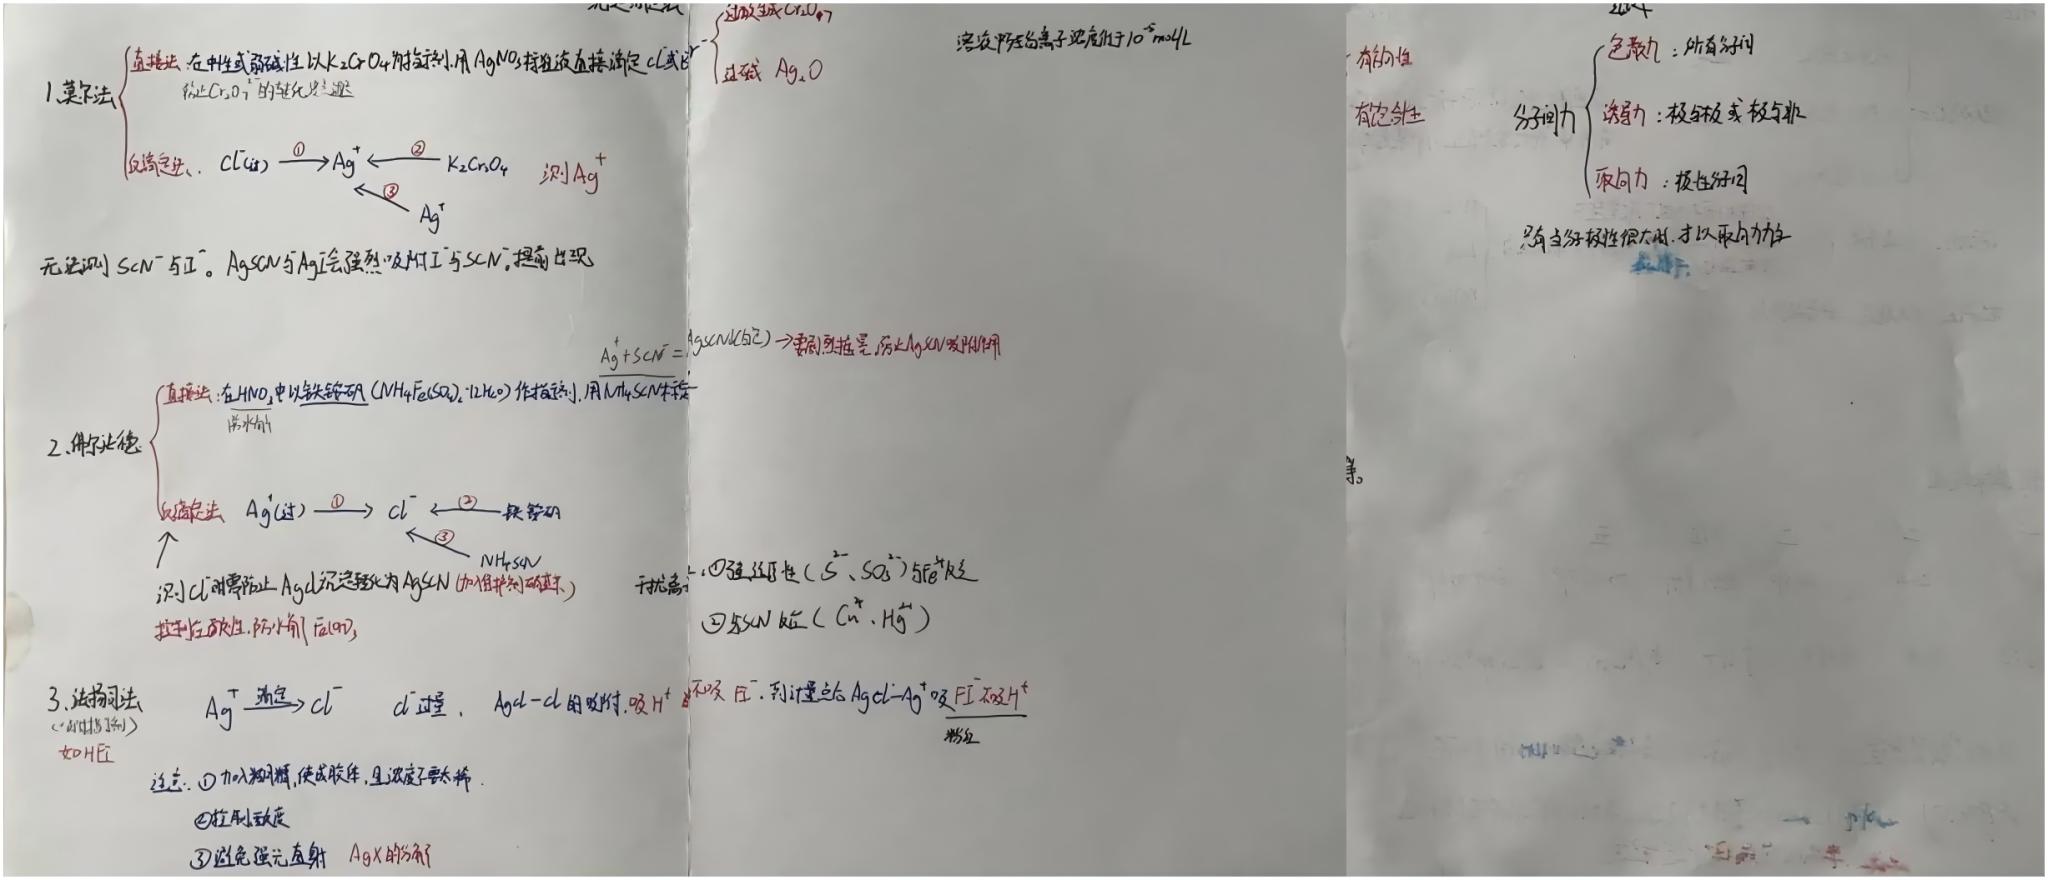 过酸生成Cr₂O₇
过碱 Ag₂O
溶液中性的离子浓度低于10⁻⁵mol/L
1.莫尔法
直接法:在中性或弱碱性以K₂CrO₄为指示剂.用AgNO₃标准液直接滴定Cl⁻或Br⁻
防止Cr₂O₇²⁻的转化
返滴定法: Cl⁻(过) ①→ Ag⁺ ←② K₂CrO₄ 测Ag⁺
③ Ag⁺
无法测SCN⁻与I⁻。AgSCN与AgI会强烈吸附I⁻与SCN⁻。提前出现
Ag⁺+SCN⁻=AgSCN↓(白色)→要剧烈摇晃,防止AgSCN吸附作用
2.佛尔哈德
直接法:在HNO₃中以铁铵矾(NH₄Fe(SO₄)₂·12H₂O)作指示剂.用NH₄SCN标定
防水解
返滴定法 Ag⁺(过) ①→ Cl⁻ ←② 铁铵矾
③ NH₄SCN
测Cl⁻时需防止AgCl沉淀转化为AgSCN(加入保护剂硝基苯)
控制在酸性.防水解Fe(OH)₃
干扰离子:①强还原性(S²⁻、SO₃²⁻)与Fe³⁺反应
②与SCN反应(Cu²⁺、Hg²⁺)
3.法扬司法
(吸附指示剂)
如HFI
Ag⁺ 滴定→ Cl⁻ Cl⁻过量, AgCl-Cl的吸附.吸H⁺不吸FI⁻.到计量点后AgCl-Ag⁺吸FI⁻不吸H⁺
粉红
注意:①加入糊精,使成胶体,且浓度不要太稀.
②控制酸度
③避免强光直射 AgX的分解
有方向性
有饱和性
分子间力
色散力:所有分子间
诱导力:极与极或极与非
取向力:极性分子间
只有当分子极性很大时.才以取向力为主